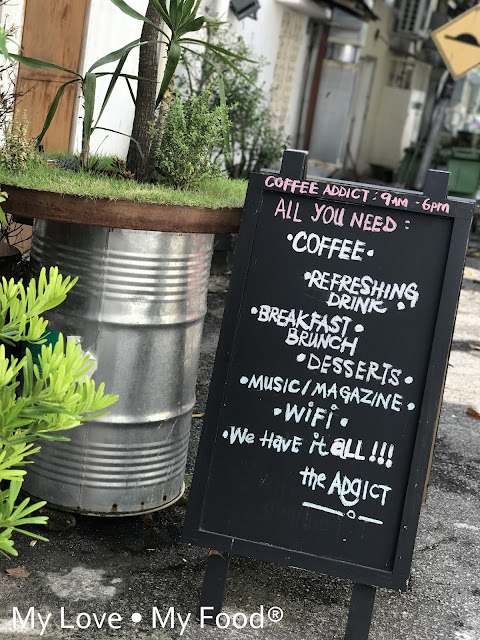 COFFEE ADDICT : 9AM - 6PM
ALL YOU NEED :
• COFFEE •
• REFRESHING
DRINK •
• BREAKFAST •
BRUNCH
• DESSERTS •
• MUSIC/MAGAZINE •
• WiFi •
• We Have it ALL!!!
the ADDICT
My Love • My Food®